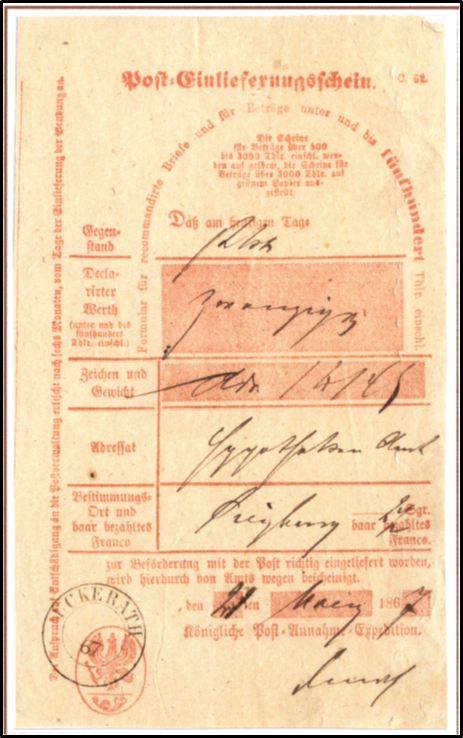 Post-Einlieferungsschein.
C. 62.
Formular für recommandirte Briefe und für Beträge unter und bis fünfhundert Thlr. einschl.
Die Scheine
für Beträge über 500
bis 3000 Thlr. einschl. wer-
den auf gelbem, die Scheine für
Beträge über 3000 Thlr. auf
grünem Papier aus-
gestellt.
Daß am heutigen Tage
Gegen-
stand
Decla-
rirter
Werth
(unter und bis
fünfhundert
Thlr. einschl.)
zwanzig
Zeichen und
Gewicht
Adressat
Hypotheken Amt
Bestimmungs-
Ort und
baar bezahltes
Franco
Sgr.
baar bezahltes
Franco.
zur Beförderung mit der Post richtig eingeliefert worden,
wird hierdurch von Amts wegen bescheinigt.
, den 21 ten 1867
Königliche Post-Annahme-Expedition.
CKERATH
67
Der Anspruch auf Entschädigung an die Postverwaltung erlischt nach sechs Monaten, vom Tage der Einlieferung der Sendung an.